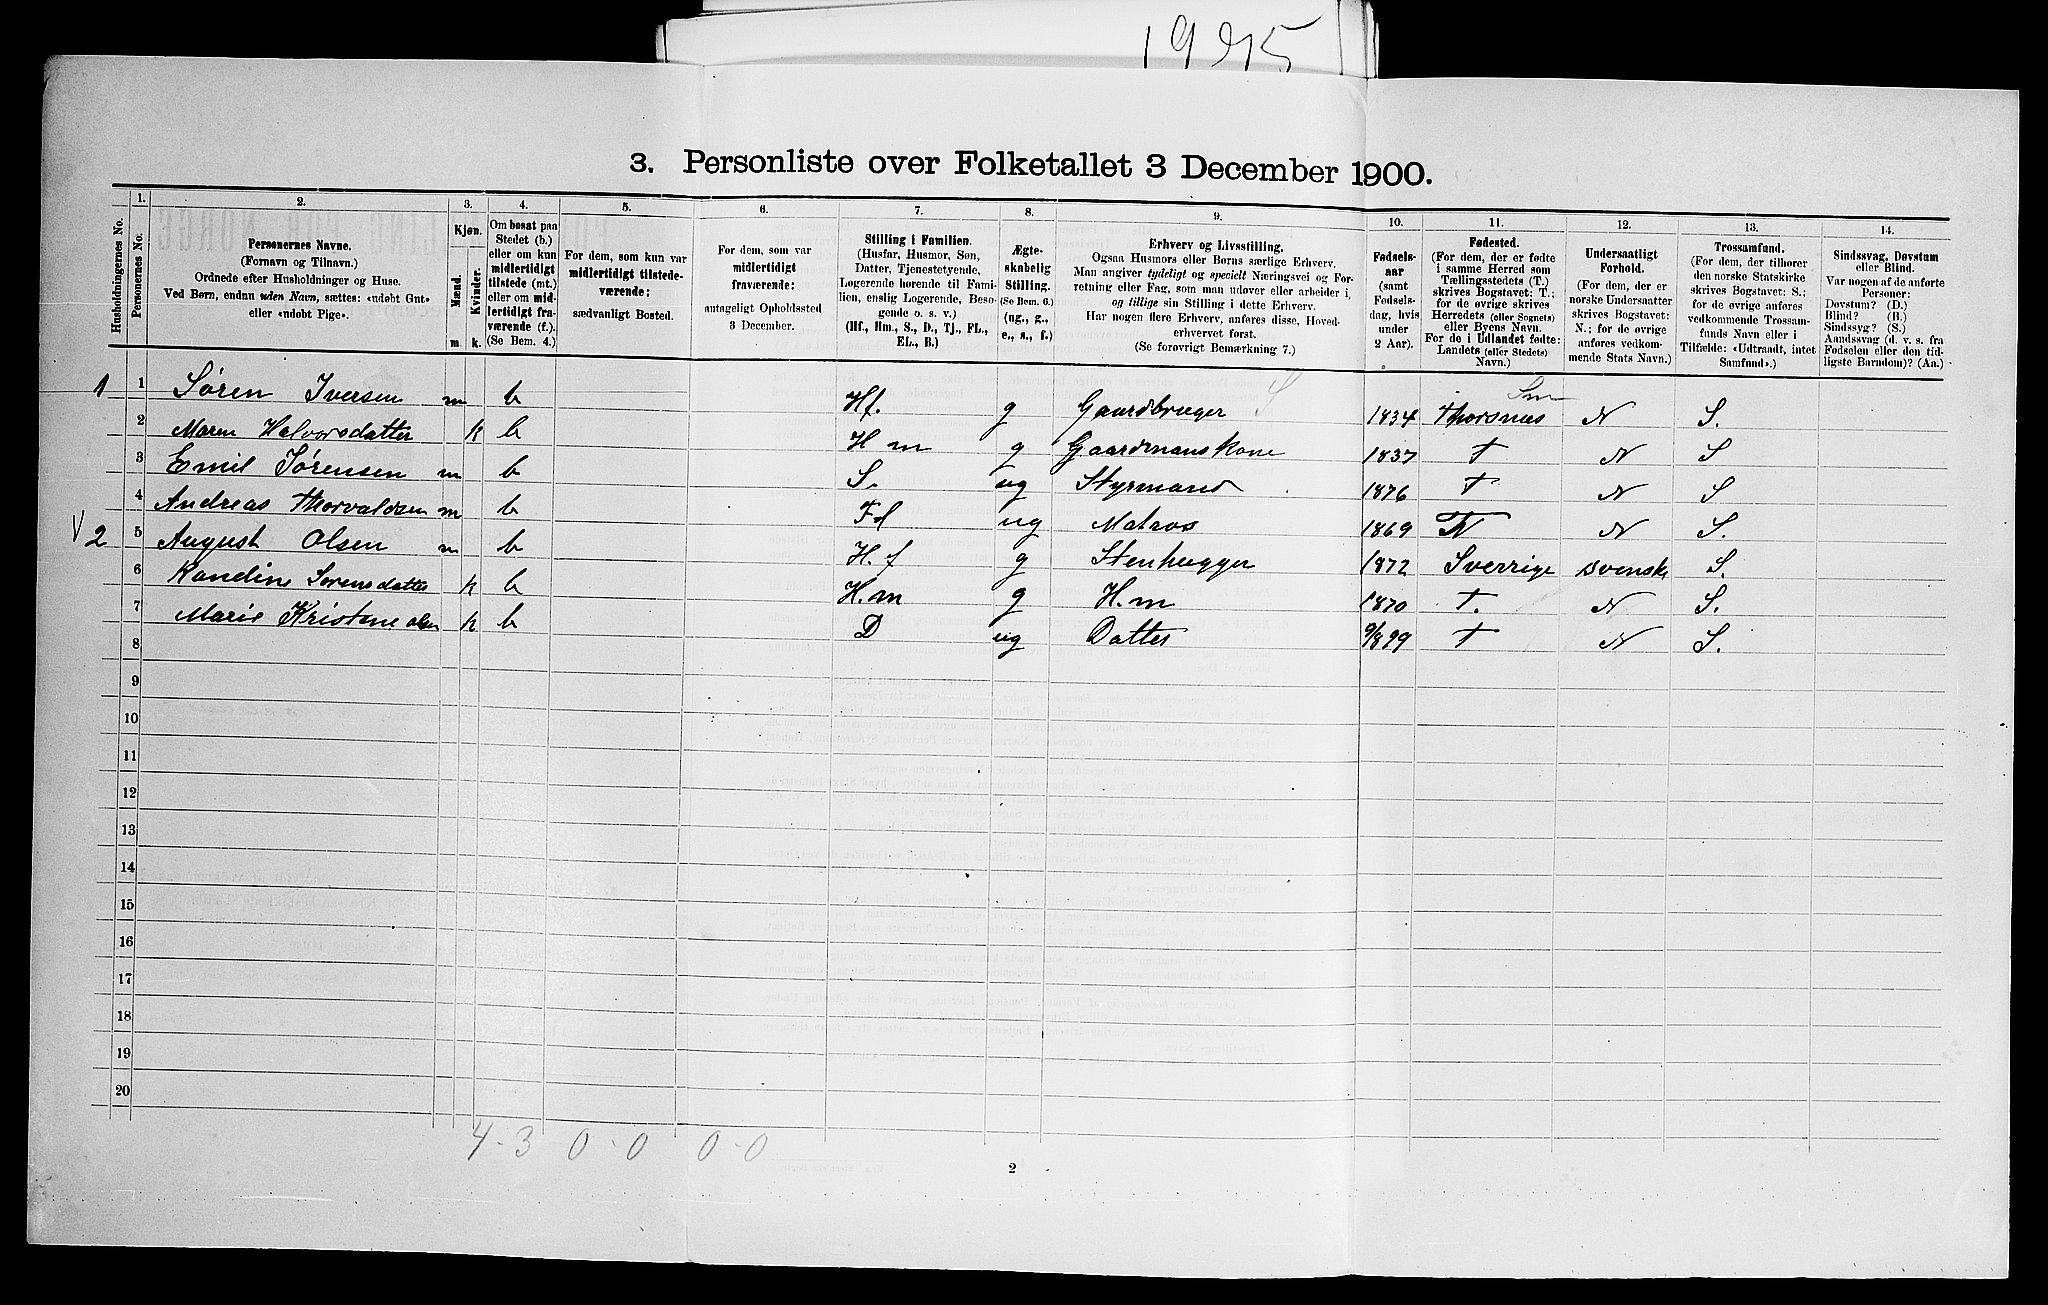 19 915
3. Personliste over Folketallet 3 December 1900.
Husholdningernes No.
1. Personernes No.
2. Personernes Navne. (Fornavn og Tilnavn.) Ordnede efter Husholdninger og Huse. Ved Børn, endnu uden Navn, sættes: «udøbt Gut» eller «udøbt Pige».
3. Kjøn. Mænd. m. Kvinder. k.
4. Om bosat paa Stedet (b.) eller om kun midlertidigt tilstede (mt.) eller om midlertidigt fraværende (f.). (Se Bem. 4.)
5. For dem, som kun var midlertidigt tilstedeværende: sædvanligt Bosted.
6. For dem, som var midlertidigt fraværende: antageligt Opholdssted 3 December.
7. Stilling i Familien. (Husfar, Husmor, Søn, Datter, Tjenestetyende, Logerende hørende til Familien, enslig Logerende, Besøgende o. s. v.) (Hf., Hm., S., D., Tj., FL., EL., B.)
8. Ægteskabelig Stilling. (Se Bem. 6.) (ug., g., e., s., f.)
9. Erhverv og Livsstilling. Ogsaa Husmors eller Børns særlige Erhverv. Man angiver tydeligt og specielt Næringsvei og Forretning eller Fag, som man udøver eller arbeider i, og tillige sin Stilling i dette Erhverv. Har nogen flere Erhverv, anføres disse, Hovederhvervet først. (Se forøvrigt Bemærkning 7.)
10. Fødselsaar (samt Fødselsdag, hvis under 2 Aar).
11. Fødested. (For dem, der er fødte i samme Herred som Tællingsstedets (T.) skrives Bogstavet: T.; for de øvrige skrives Herredets (eller Sognets) eller Byens Navn. For de i Udlandet fødte: Landets (eller Stedets) Navn.)
12. Undersaatligt Forhold. (For dem, der er norske Undersaatter skrives Bogstavet: N.; for de øvrige anføres vedkommende Stats Navn.)
13. Trossamfund. (For dem, der tilhører den norske Statskirke skrives Bogstavet: S.; for de øvrige anføres vedkommende Trossamfunds Navn eller i Tilfælde: «Udtraadt, intet Samfund».)
14. Sindssvag, Døvstum eller Blind. Var nogen af de anførte Personer: Døvstum? (D.) Blind? (B.) Sindssyg? (S.) Aandssvag (d. v. s. fra Fødselen eller den tidligste Barndom)? (Aa.)
1 1 Søren Iversen m b Hf. g Gaardbruger S 1834 Thorsnæs Sm N S.
2 Maren Halvorsdatter k b Hm g Gaardmanskone 1837 T N S
3 Emil Sørensen m b S. ug Styrmand 1876 T N S
4 Andreas Thorvaldsen m b Fl ug Matros 1869 N S.
2 5 August Olsen m b H.f g Stenhugger 1872 Sverrige svensk S.
6 Kandine Sørensdatter k b H.m g H.m 1870 T. N S.
7 Marie Kristine Olsen k b D ug Datter 9/8 99 T N S.
8
9
10
11
12
13
14
15
16
17
18
19
20
4-3 0-0 0-0
2